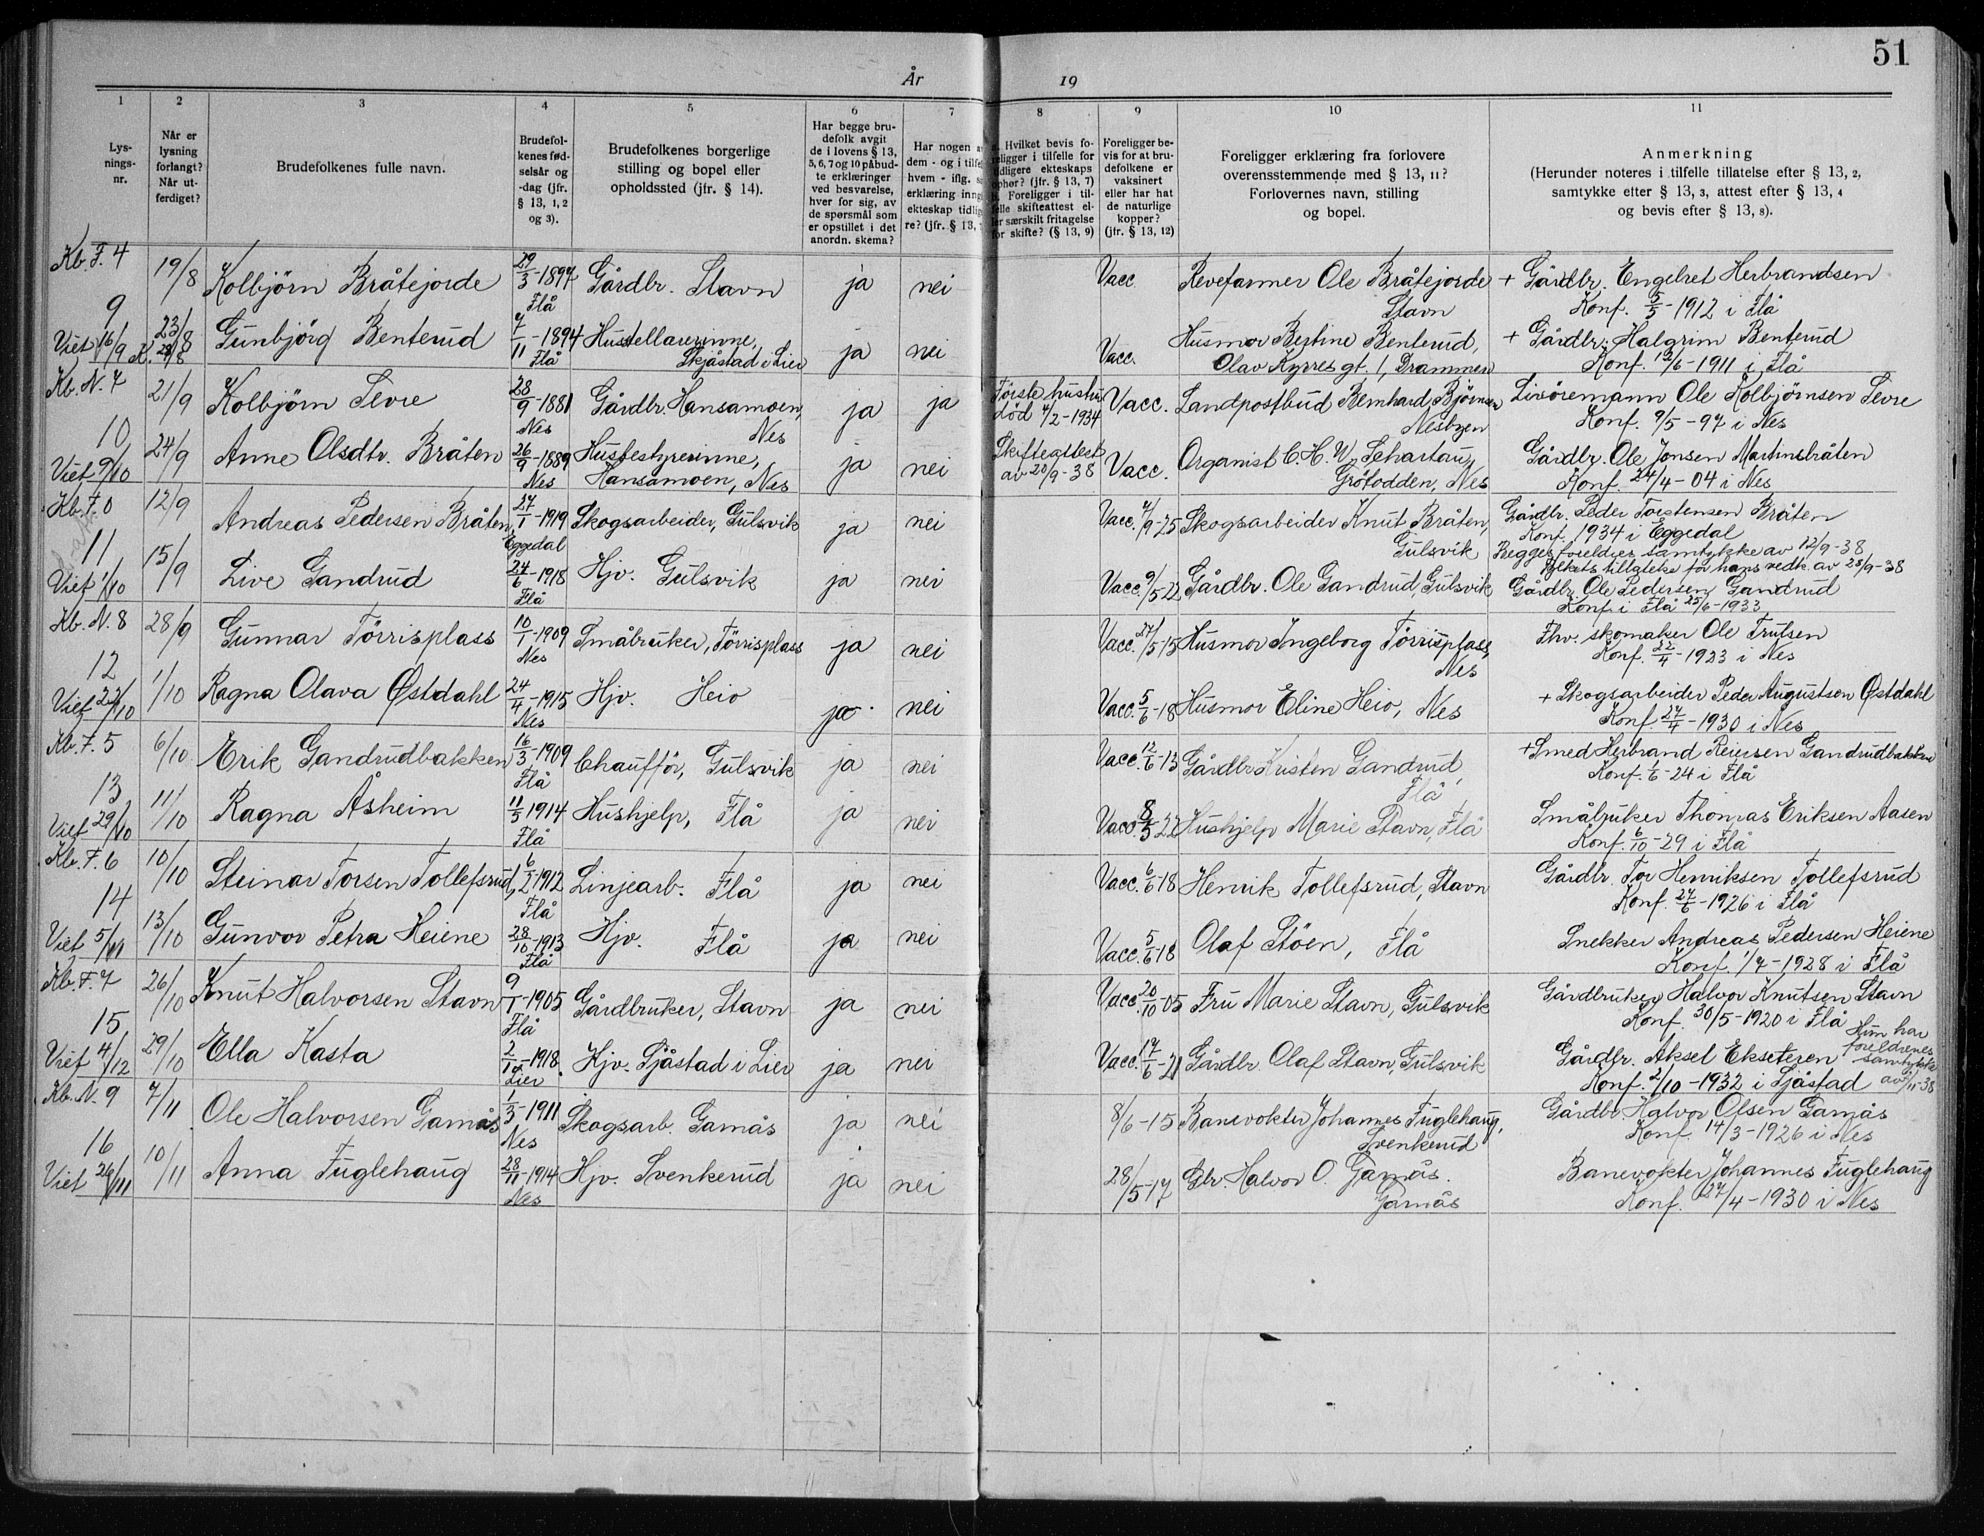 51
År 19
1 2 3 4 5 6 7 8 9 10 11
Lys-
nings-
nr.
Når er
lysning
forlangt?
Når ut-
ferdiget?
Brudefolkenes fulle navn.
Brudefol-
kenes fød-
selsår og
-dag (jfr.
§ 13, 1, 2
og 3).
Brudefolkenes borgerlige
stilling og bopel eller
opholdssted (jfr. § 14).
Har begge bru-
defolk avgit
de i lovens § 13,
5, 6, 7 og 10 påbud-
te erklæringer
ved besvarelse,
hver for sig, av
de spørsmål som
er opstillet i det
anordn. skema?
Har nogen a
dem - og i tilfel
hvem - iflg. s
erklæring inng
ekteskap tidlig
re? (jfr. § 13,
Hvilket bevis fo-
religger i tilfelle for
tidligere ekteskaps
ophør? (jfr. § 13, 7)
Foreligger i til-
felle skifteattest el-
ler særskilt fritagelse
for skifte? (§ 13, 9)
Foreligger be-
vis for at bru-
defolkene er
vaksinert
eller har hat
de naturlige
kopper?
(jfr. § 13, 12)
Foreligger erklæring fra forlovere
overensstemmende med § 13, 11?
Forlovernes navn, stilling
og bopel.
Anmerkning
(Herunder noteres i tilfelle tillatelse efter § 13, 2,
samtykke etter § 13, 3, attest efter § 13, 4
og bevis efter § 13, 8).
Kb. F. 4 19/8 Kolbjörn Bråtejorde 29/3-1897 Flå Gårdbr. Stavn ja nei Vacc. Revefarmer Ole Bråtejorde Stavn + Gårdbr. Engebret Herbrandsen
Konf. 5/5-1912 i Flå
9
Viet 16/9 23/8 Gunbjörg Benterud 7/11-1894 Flå Hustellærerinne, Skjåstad i Lier ja nei Vacc. Husmor Bertine Benterud, + Gårdbr. Halgrim Benterud
Olav Kyrres gt. 1, Drammen Konf. 12/6-1911 i Flå
Kb. N. 7 21/9 Kolbjörn Sevre 28/9-1881 Nes Gårdbr. Hansamoen, Nes ja ja Første hustru død 4/2-1934 Vacc. Landpostbud Bernhard Bjørnsen Nesbyen Livøremann Ole Kolbjørnsen Sevre
Konf. 9/5-97 i Nes
10
Viet 9/10 24/9 Anne Olsdtr. Bråten 26/9-1889 Nes Husbestyrerinne, Hansamoen, Nes ja nei Skifteattest av 20/9-38 Vacc. Organist C. H. W. Schartau, Grötodden, Nes Gårdbr. Ole Jonsen Martinsbråten
Konf. 24/4-04 i Nes
Kb. F. 0 12/9 Andreas Pedersen Bråten 27/1-1919 Eggedal Skogsarbeider, Gulsvik ja nei Vacc. 4/9-25 Skogsarbeider Knut Bråten, Gulsvik Gårdbr. Peder Torstensen Bråten
Konf. 1934 i Eggedal
Begges foreldres samtykke av 12/9-38
Fylkets tillatelse for hans vedk. av 28/9-38
11
Viet 1/10 15/9 Live Gandrud 24/6-1918 Flå Hjv. Gulsvik ja nei Vacc. 9/5-22 Gårdbr. Ole Gandrud, Gulsvik Gårdbr. Ole Pedersen Gandrud
Konf. i Flå 25/6-1933
Kb. N. 8 28/9 Gunnar Törrisplass 10/1-1909 Nes Småbruker, Törrisplass ja nei Vacc. 27/5-15 Husmor Ingeborg Törrisplass, Nes Fhv. skomaker Ole Trulsen
Konf. 22/4-1923 i Nes
12
Viet 22/10 1/10 Ragna Olava Østdahl 24/4-1915 Nes Hjv. Heio ja nei Vacc. 5/6-18 Husmor Eline Heio, Nes + Skogsarbeider Peder Augustson Østdahl
Konf. 27/4-1930 i Nes
Kb. F. 5 6/10 Erik Gandrudbakken 16/3-1909 Flå Chaufför, Gulsvik ja nei Vacc. 12/6-13 Gårdbr. Kristen Gandrud, Flå + Smed Herbrand Reiersen Gandrudbakken
Konf. 1/6-24 i Flå
13
Viet 29/10 11/10 Ragna Åsheim 11/5 1914 Flå Hushjelp, Flå ja nei Vacc. 8/5-22 Hushjelp Marie Stavn, Flå Småbruker Thomas Eriksen Aasen
Konf. 6/10-29 i Flå
Kb. F. 6 10/10 Steinar Torsen Tollefsrud, 6/2 1912 Flå Linjearb. Flå ja nei Vacc. 6/6-18 Henrik Tollefsrud, Stavn Gårdbr. Tor Henriksen Tollefsrud
Konf. 27/6-1926 i Flå
14
Viet 5/11 13/10 Gunvor Petra Heiene 28/10-1913 Flå Hjv. Flå ja nei Vacc. 5/6-18 Olaf Stöen, Flå Snekker Andreas Pedersen Heiene
Konf. 1/7-1928 i Flå
Kb. F. 7 26/10 Knut Halvorsen Stavn 9/1-1905 Flå Gårdbruker, Stavn ja nei Vacc. 20/10-05 Fru Marie Stavn, Gulsvik Gårdbruker Halvor Knutsen Stavn
Konf. 30/5-1920 i Flå
15
Viet 4/12 29/10 Ella Kasta 2/10-1918 Lier Hjv. Sjåstad i Lier ja nei Vacc. 17/6-21 Gårdbr. Olaf Stavn, Gulsvik Gårdbr. Aksel Ekseteren
Konf. 2/10-1932 i Sjåstad
Hun har foreldrenes samtykke
Kb. N. 9 7/11 Ole Halvorsen Garnås 1/3-1911 Nes Skogsarb. Garnås ja nei 8/6-15 Banevokter Johannes Fuglehaug, Svenkerud Gårdbr. Halvor Olsen Garnås
Konf. 14/3-1926 i Nes
16
Viet 26/11 10/11 Anna Fuglehaug 28/11-1914 Nes Hjv. Svenkerud ja nei 28/5-17 Gbr. Halvor O. Garnås. Garnås Banevokter Johannes Fuglehaug
Konf. 27/4-1930 i Nes